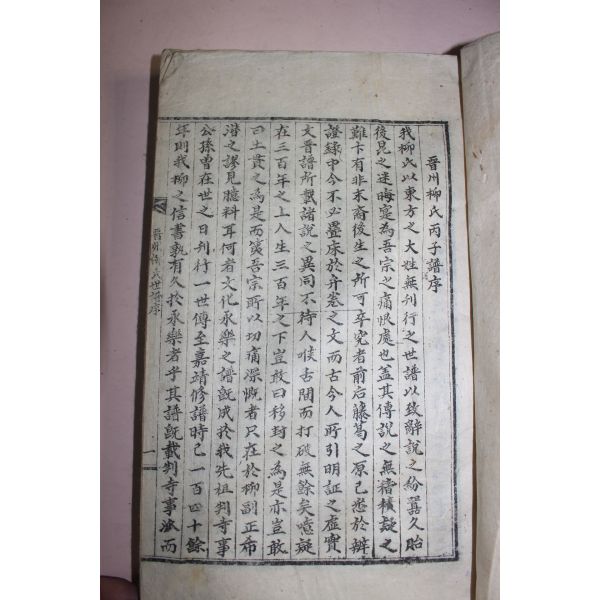 晋州柳氏丙子譜序
我柳氏以東方之大姓無刊行之世譜以致辭說之紛囂久貽
後昆之迷晦寔為吾宗之痛恨處也盖其傳說之無稽積疑之
難卞有非末裔後生之所可卒究者前后藤葛之原已悉於辨
證錄中今不必疊床於弁卷之文而古今人所引明証之虛實
文晋譜所載諸說之異同不待人喉舌間而打破無餘矣噫疑
在三百年之上人生三百年之下豈敢曰移封之為是亦豈敢
曰土貫之為是而奚吾宗所以切痛深慨者只在於柳副正希
潜之謬見臆料耳何者文化永樂之譜旣成於我先祖判寺事
公孫曾在世之日刋行一世傳至嘉靖修譜時已一百四十餘
年則我柳之信書孰有久於永樂者乎其譜旣載判寺事派而
晋州柳氏世譜序
一